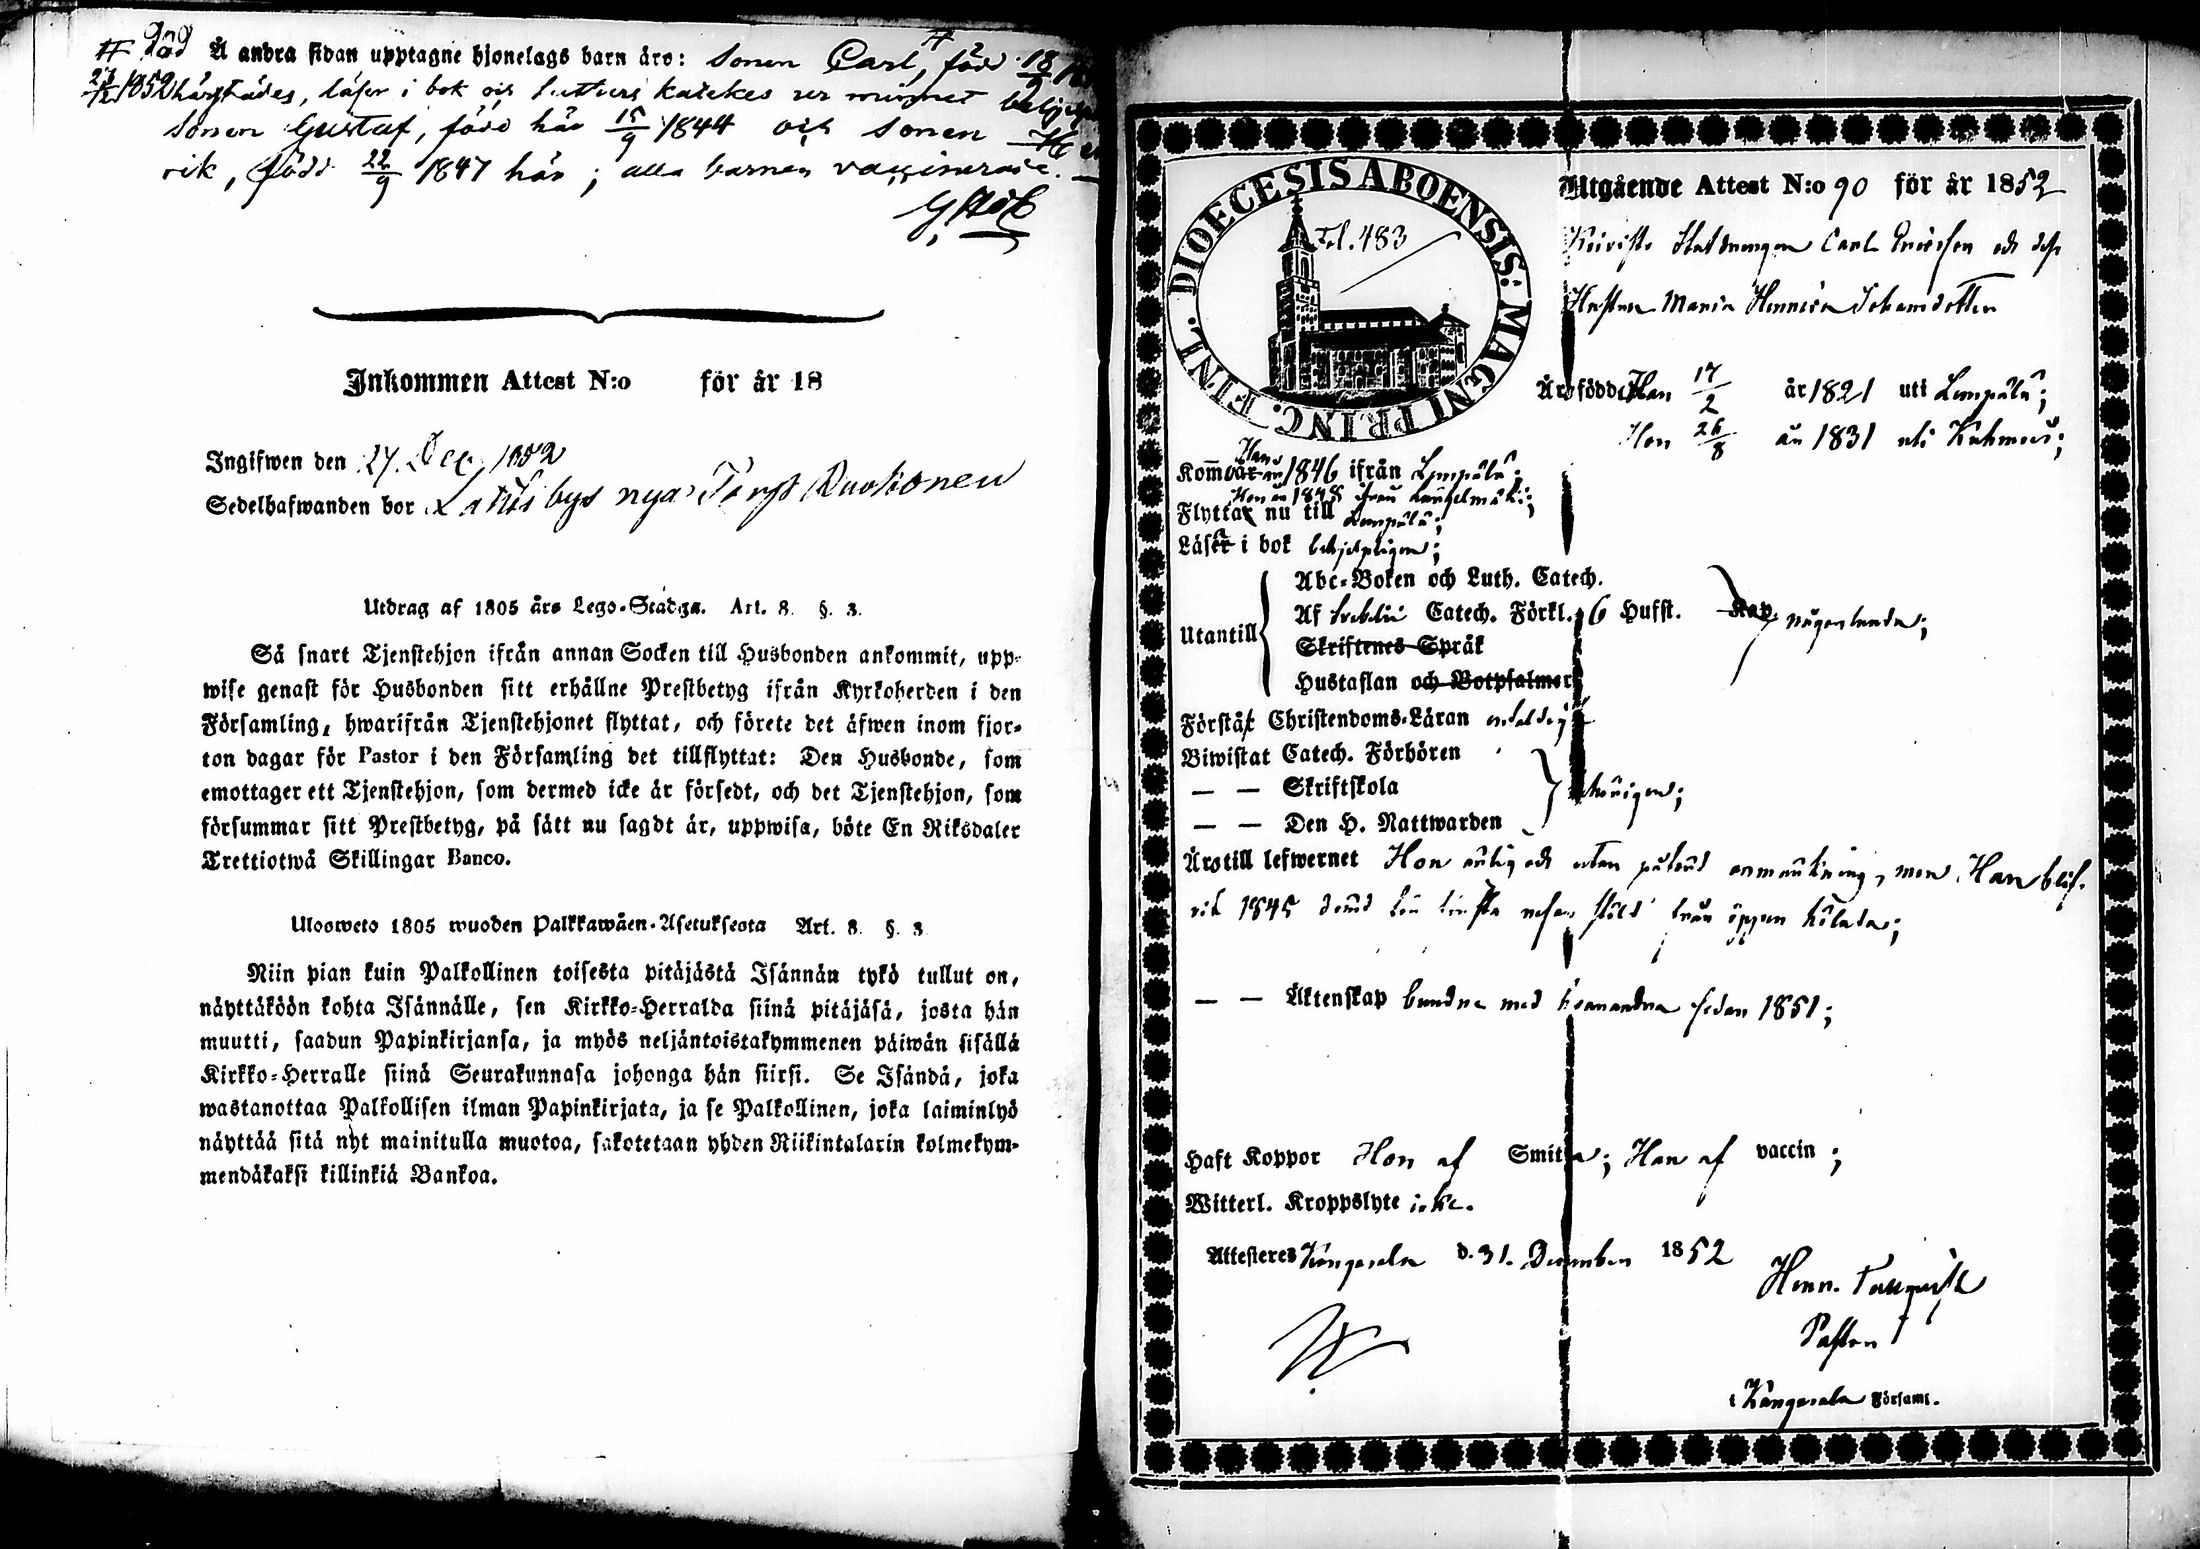 # död Å andra sidan upptagne hjonelags barn äro: Sonen Carl, # född 18
1852 härstädes, läser i bok och Lutheri katekes ur minnet
Sonen Gustaf, född här 15/9 1844 och sonen H
rik, född 22/9 1847 här; alla barnen vaccinerade.
Inkommen Attest N:o för år 18
Ingifwen den 27 Dec. 1852
Sedelhafwanden bor bys nya Torp
Utdrag af 1805 års Lego-Stadga. Art. 8. §. 3.
Så snart Tjenstehjon ifrån annan Socken till Husbonden ankommit, upp-
wise genast för Husbonden sitt erhållne Prestbetyg ifrån Kyrkoherden i den
Församling, hwarifrån Tjenstehjonet flyttat, och förete det äfwen inom fjor-
ton dagar för Pastor i den Församling det tillflyttat: Den Husbonde, som
emottager ett Tjenstehjon, som dermed icke är försedt, och det Tjenstehjon, som
försummar sitt Prestbetyg, på sätt nu sagdt är, uppwisa, böte En Riksdaler
Trettiotwå Skillingar Banco.
Ulosweto 1805 wuoden Palkkawäen-Asetuksesta Art. 8. §. 3
Niin pian kuin Palkollinen toisesta pitäjästä Isännän tykö tullut on,
näyttäköön kohta Isännälle, sen Kirkko-Herralda siinä pitäjäsä, josta hän
muutti, saadun Papinkirjansa, ja myös neljäntoistakymmenen päiwän sisällä
Kirkko-Herralle siinä Seurakunnasa johonga hän siirsi. Se Isändä, joka
wastanottaa Palkollisen ilman Papinkirjata, ja se Palkollinen, joka laiminlyö
näyttää sitä nyt mainitulla muotoa, sakotetaan yhden Riikintalarin kolmekym-
mendäkaksi killinkiä Bankoa.
DIOECESIS ABOENSIS: MAGNI PRINC. FINL.
Fol. 483
Utgående Attest N:o 90 för år 1852
Carl Ericsson och dess
Hustru Maria Henrica Johansdotter
Äro födde Han 17/2 år 1821 uti Lempälä;
Hon 26/8 år 1831 uti Kuhmois;
Komm Han år 1846 ifrån Lempälä;
Hon år 1848 från Längelmäki;
Flytta nu till Lempälä;
Läser i bok behjelpligen;
Utantill
Abc-Boken och Luth. Catech.
Af Svebelii Catech. Förkl. 6 Hufst. Kap. någorlunda;
Skriftenes Språk
Hustaflan och Botpsalmer
Förstå Christendoms-Läran enfaldigt
Biwistat Catech. Förhören
— — Skriftskola
— — Den H. Nattwarden
Äro till lefwernet Hon ärlig och utan anmärkning, men Han blif-
vit 1845 dömd
— — Äktenskap bundne med hvarandra sedan 1851;
Haft Koppor Hon af Smitta; Han af vaccin;
Witterl. Kroppslyte icke.
Attesteres Kangasala d. 31. December 1852
Henr.
Pastor
i Kangasala Församl.